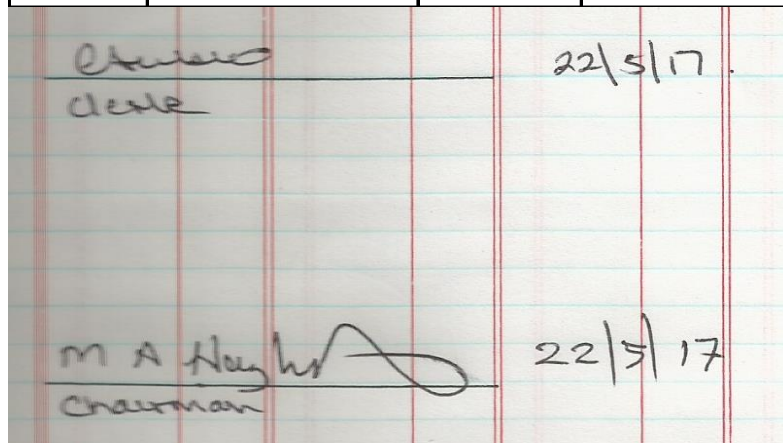 22/5/17.
Clerk
M A 22/5/17
Chairman